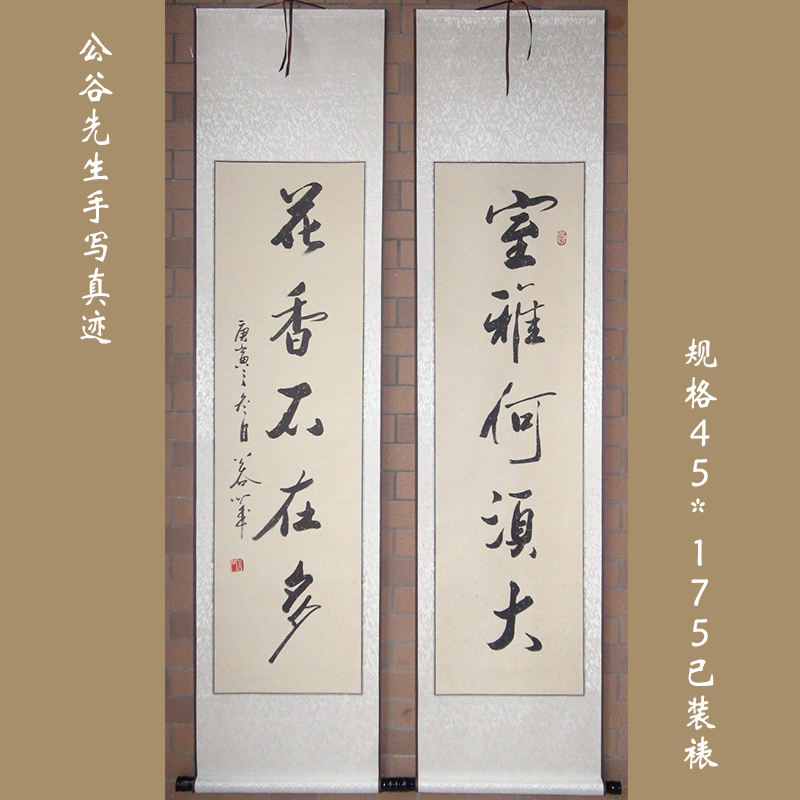 公谷先生手写真迹
室雅何須大
花香不在多
庚寅之冬日公谷書
规格45*175已装裱